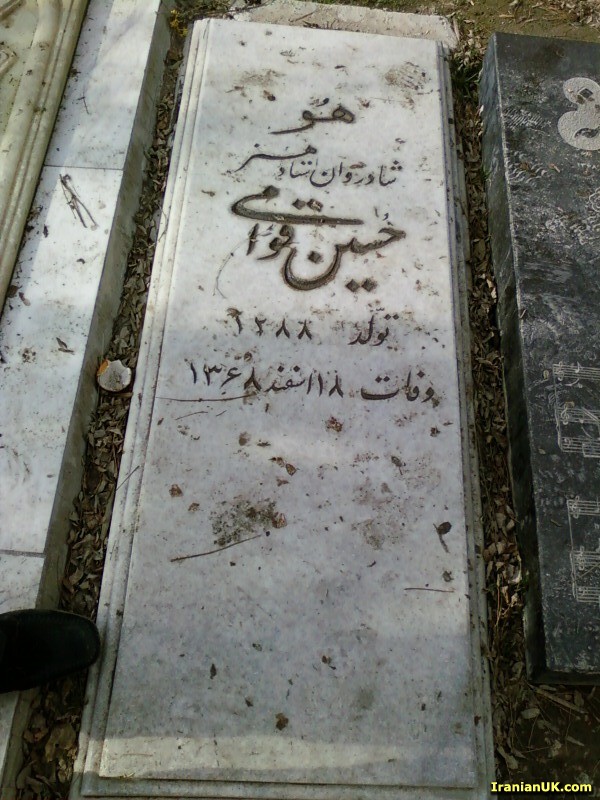 هو
شادروان استاد هنر
حسین قوامی
تولد ۱۲۸۸
وفات ۱۸ اسفند ۱۳۶۸
IranianUK.com